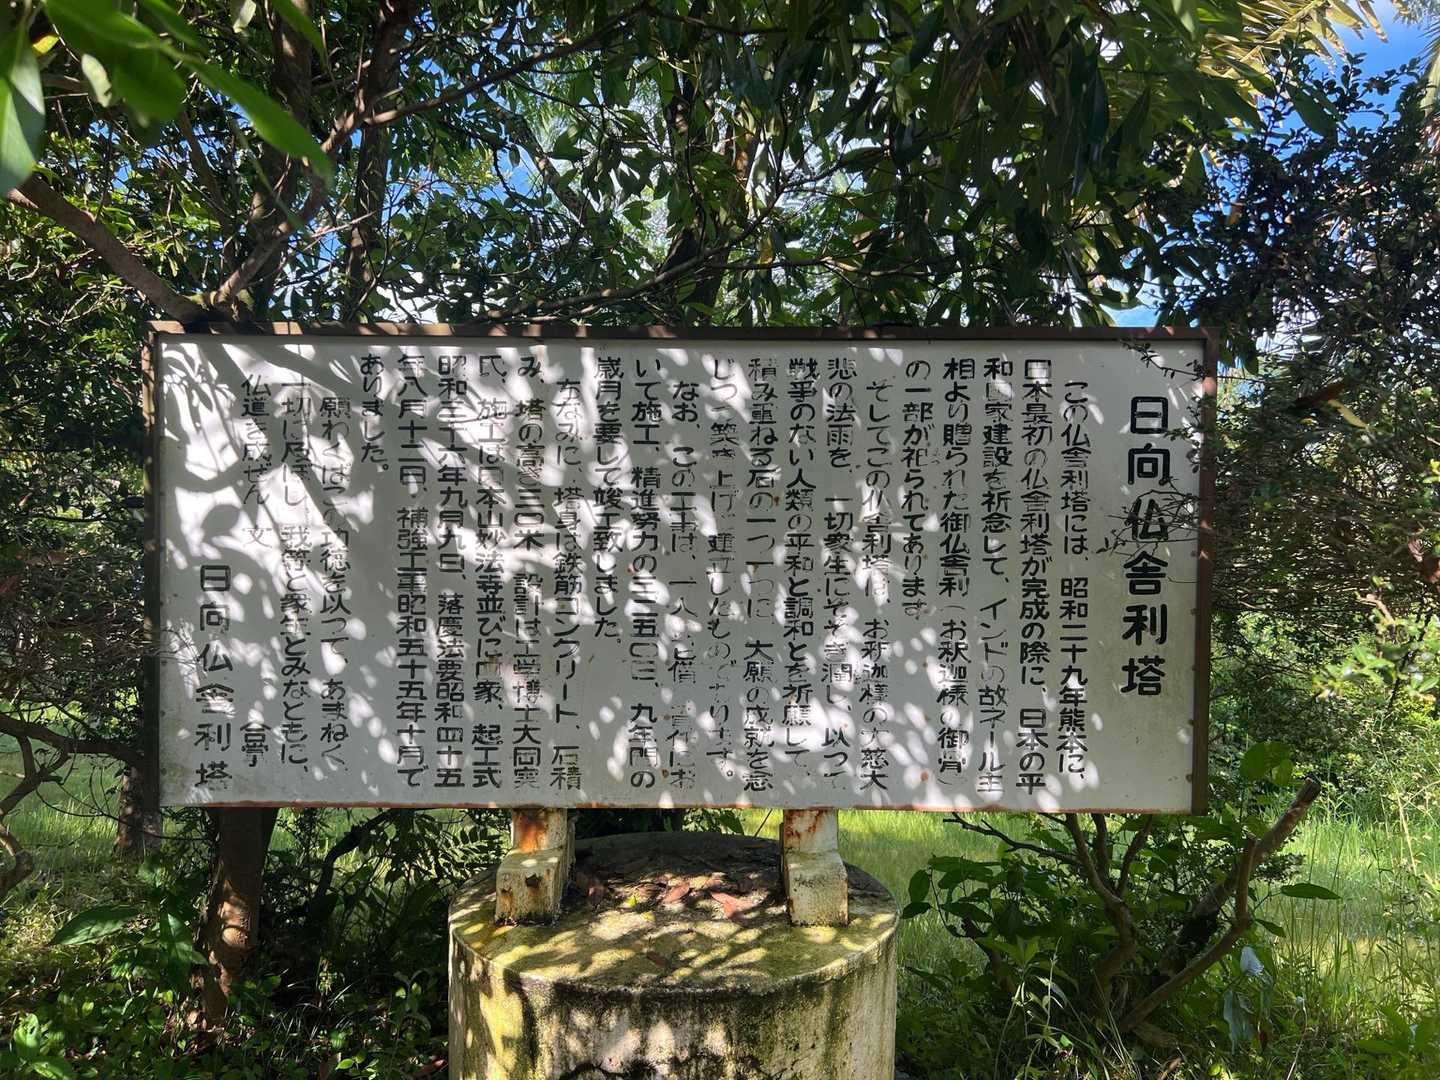 日向仏舎利塔
この仏舎利塔には、昭和二十九年熊本に、
日本最初の仏舎利塔が完成の際に、日本の平
和国家建設を祈念して、インドの故ネール主
相より贈られた御仏舎利(お釈迦様の御骨)
の一部が祀られてあります
そしてこの仏舎利塔は、お釈迦様の大慈大
悲の法雨を、一切衆生にそそぎ潤し、以って
戦争のない人類の平和と調和とを祈願して、
積み重ねる石の一つ一つに、大願の成就を念
じつつ築き上げ、建立したものであります。
なお、この工事は、一人
いて施工、精進努力の三二五〇三、九年間の
歳月を要して竣工致しました。
ちなみに、塔身は鉄筋コンクリート、石積
み、塔の高さ三〇米、設計は工学博士大岡実
氏、施工は日本山妙法寺並びに門家、起工式
昭和三十六年九月九日、落慶法要昭和四十五
年八月十二日、補強工事昭和五十五年十月で
ありました。
願わくばこの功徳を以って、あまねく、
一切に及ぼし、我等と衆生とみなともに、
仏道を成ぜん 文 合掌
日向仏舎利塔